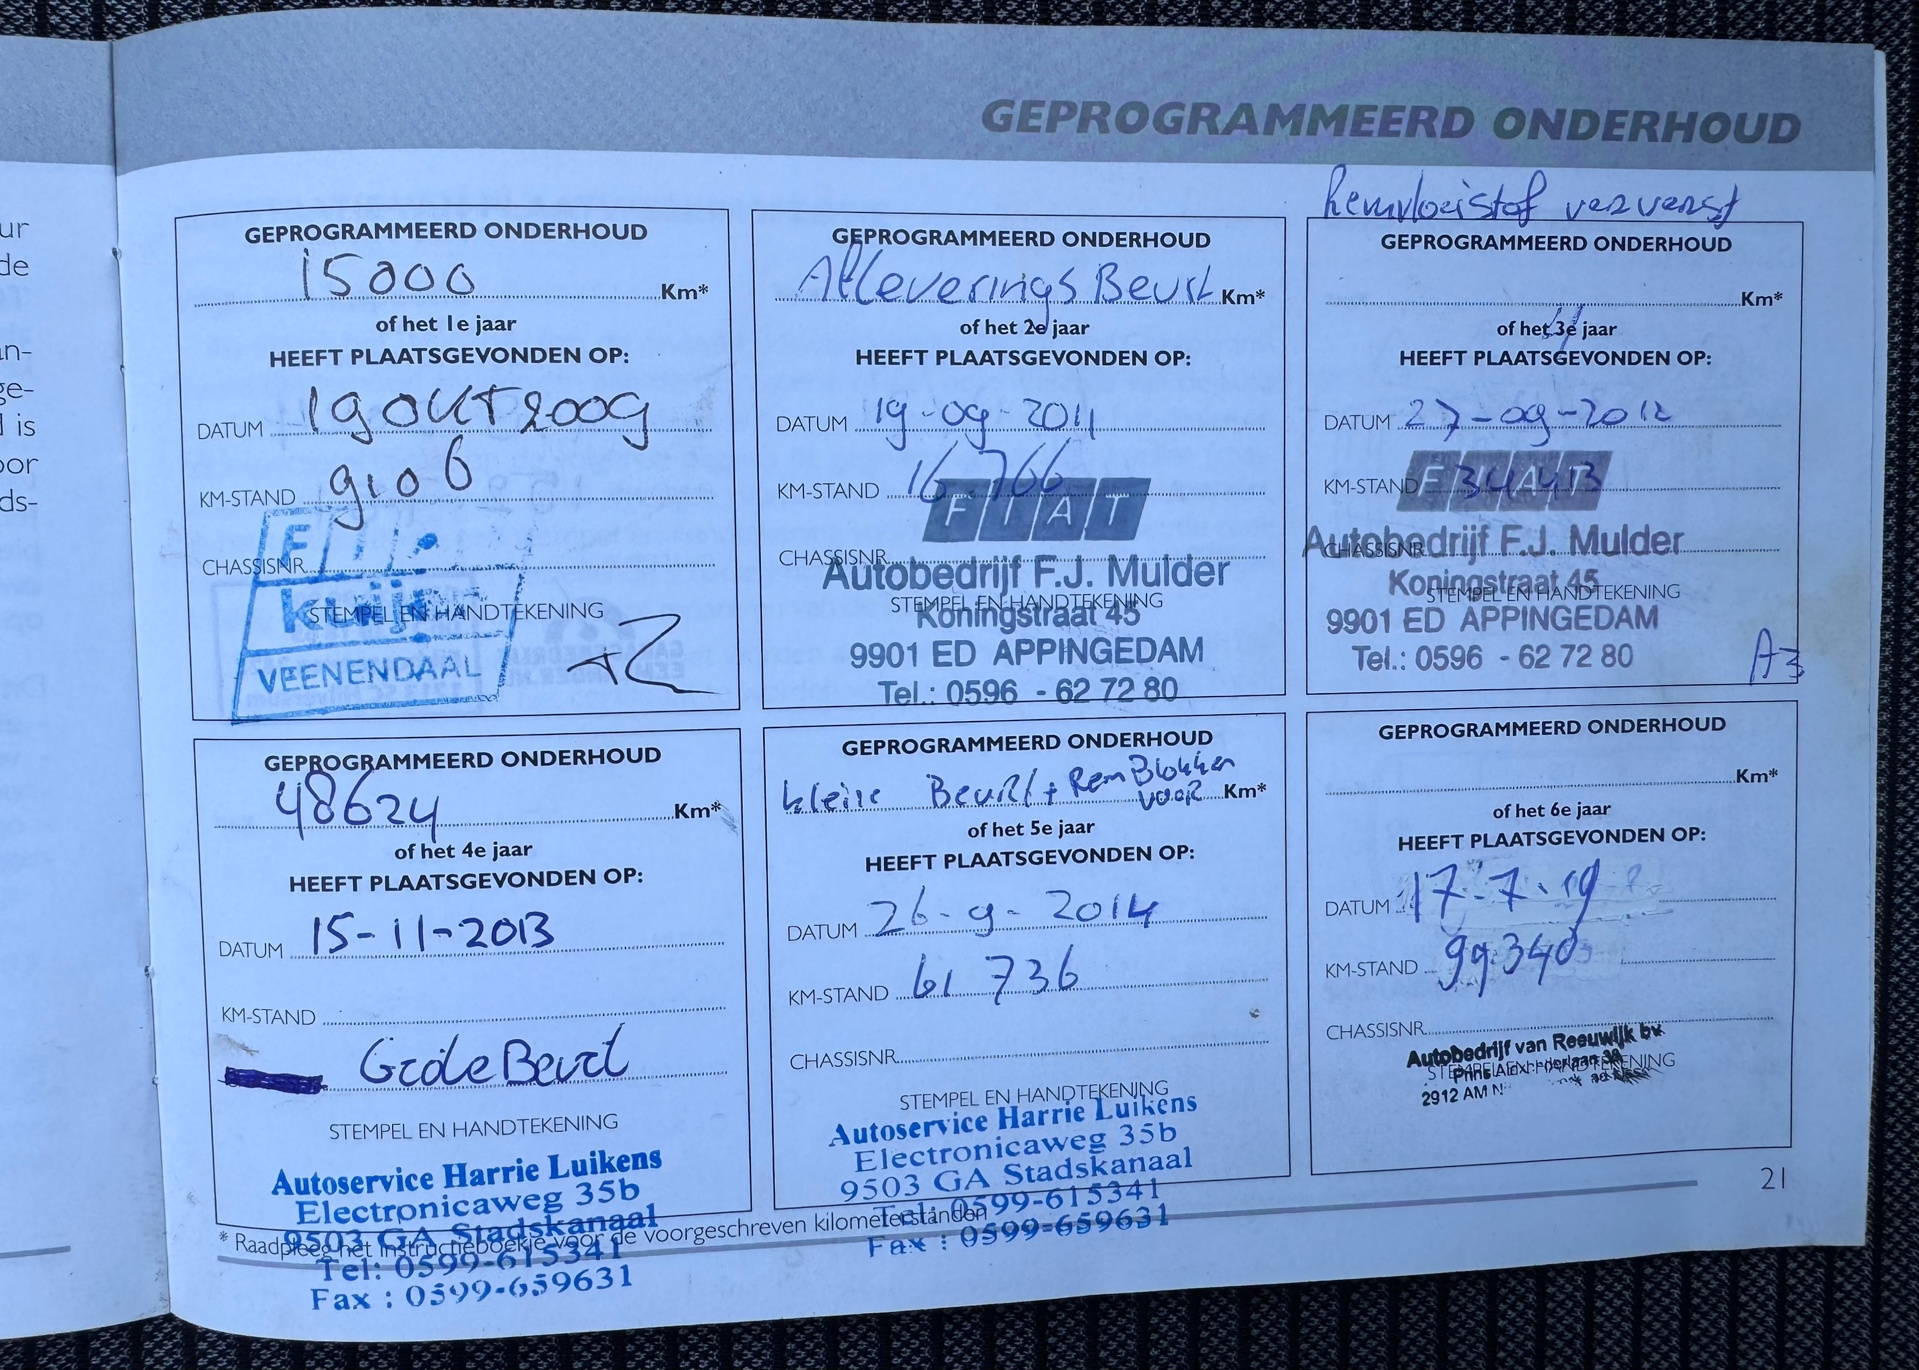 ur
de
an-
ge-
d is
oor
ds-
GEPROGRAMMEERD ONDERHOUD
GEPROGRAMMEERD ONDERHOUD
15000 Km*
of het 1e jaar
HEEFT PLAATSGEVONDEN OP:
DATUM 19 OKT 2009
KM-STAND 9106
CHASSISNR.
STEMPEL EN HANDTEKENING
VEENENDAAL
GEPROGRAMMEERD ONDERHOUD
Afleverings Beurt Km*
of het 2e jaar
HEEFT PLAATSGEVONDEN OP:
DATUM 19-09-2011
KM-STAND 16 766
FIAT
CHASSISNR.
Autobedrijf F.J. Mulder
STEMPEL EN HANDTEKENING
Koningstraat 45
9901 ED APPINGEDAM
Tel.: 0596 - 62 72 80
Remvloeistof ververst
GEPROGRAMMEERD ONDERHOUD
Km*
of het 3e jaar
4
HEEFT PLAATSGEVONDEN OP:
DATUM 27-09-2012
KM-STAND 34413
FIAT
CHASSISNR.
Autobedrijf F.J. Mulder
Koningstraat 45
STEMPEL EN HANDTEKENING
9901 ED APPINGEDAM
Tel.: 0596 - 62 72 80
GEPROGRAMMEERD ONDERHOUD
48624 Km*
of het 4e jaar
HEEFT PLAATSGEVONDEN OP:
DATUM 15-11-2013
KM-STAND
Grote Beurt
STEMPEL EN HANDTEKENING
Autoservice Harrie Luikens
Electronicaweg 35b
9503 GA Stadskanaal
Tel: 0599-615341
Fax : 0599-659631
GEPROGRAMMEERD ONDERHOUD
kleine Beurt + Rem Blokken
voor Km*
of het 5e jaar
HEEFT PLAATSGEVONDEN OP:
DATUM 26-9-2014
KM-STAND 61 736
CHASSISNR.
STEMPEL EN HANDTEKENING
Autoservice Harrie Luikens
Electronicaweg 35b
9503 GA Stadskanaal
Tel: 0599-615341
Fax : 0599-659631
GEPROGRAMMEERD ONDERHOUD
Km*
of het 6e jaar
HEEFT PLAATSGEVONDEN OP:
DATUM 17.7.19
KM-STAND 99.340
CHASSISNR.
Autobedrijf van Reeuwijk bv
STEMPEL EN HANDTEKENING
2912 AM
* Raadpleeg het instructieboekje voor de voorgeschreven kilometerstanden
21